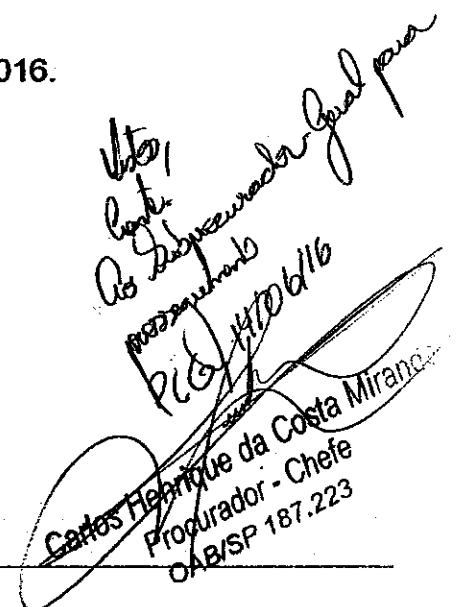 016.
Visto,
Ciente.
Ao Subprocurador-Geral para
prosseguimento
PLG, 14/06/16
Carlos Henrique da Costa Miranda
Procurador - Chefe
OAB/SP 187.223